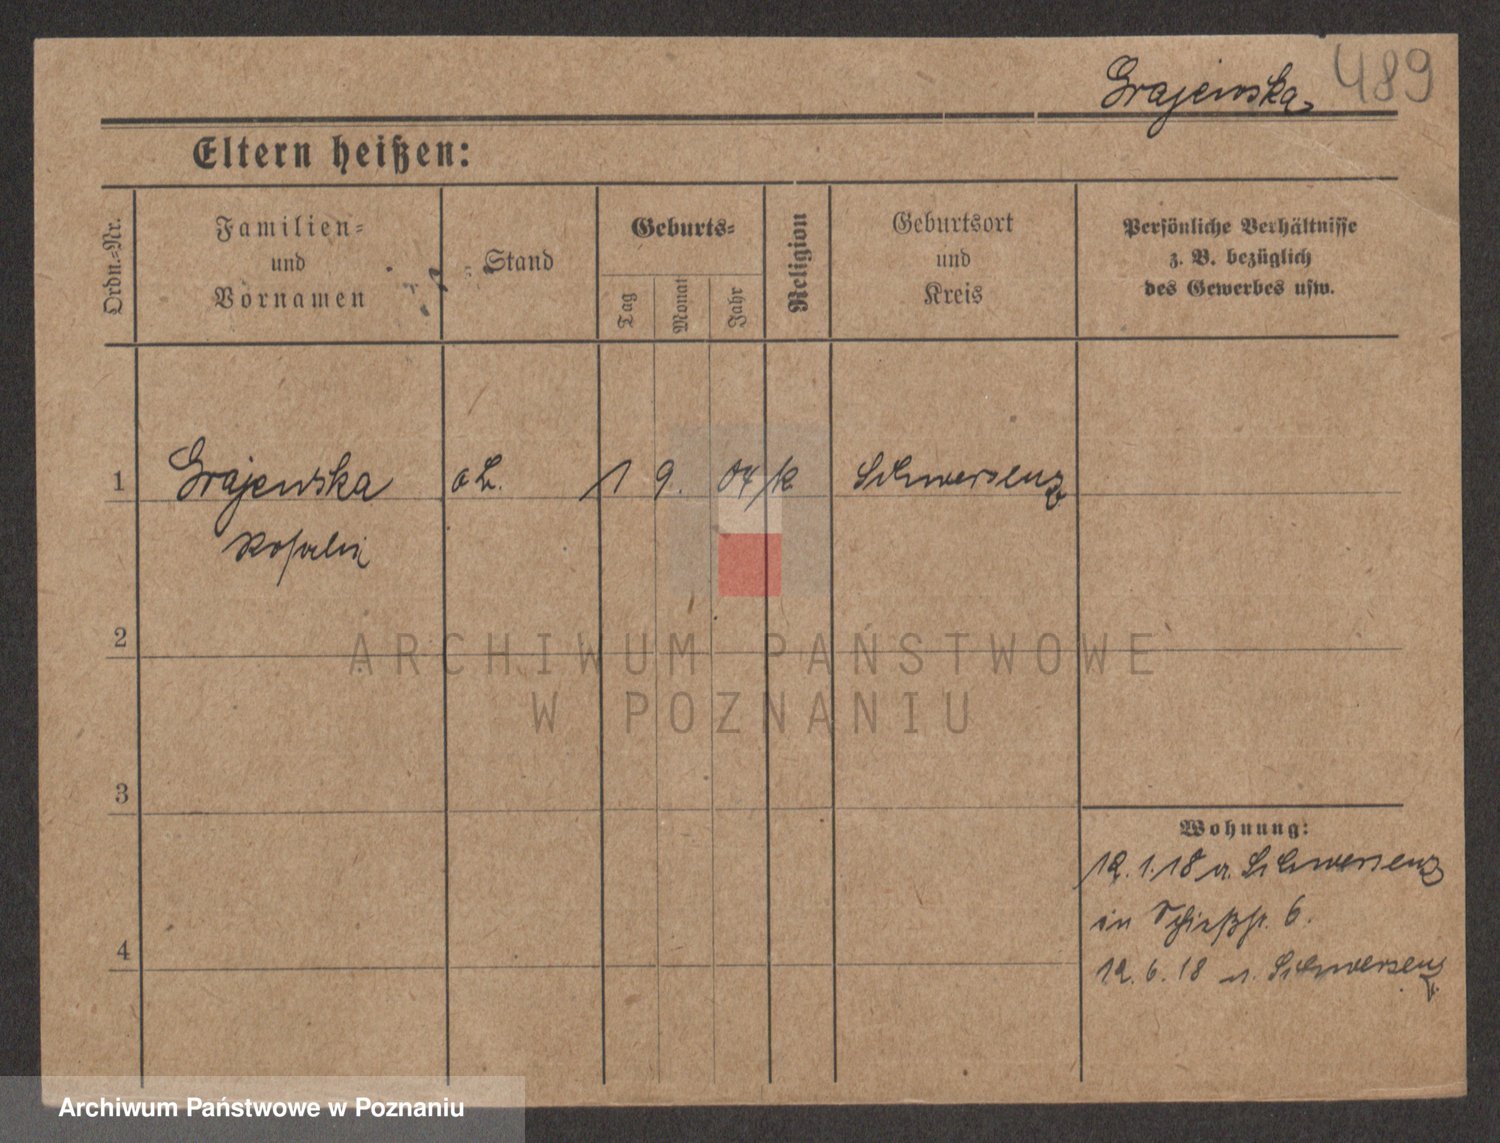 Grajewska 489
Eltern heißen:
Ordn.-Nr.
Familien-
und
Vornamen
Stand
Geburts-
Tag
Monat
Jahr
Religion
Geburtsort
und
Kreis
Persönliche Verhältnisse
z. B. bezüglich
des Gewerbes usw.
1 Grajewska 1 9. 04 k Schwersenz
Rosalia
2
ARCHIWUM PAŃSTWOWE
W POZNANIU
3
Wohnung:
12. 1. 18 v. Schwersenz
in Schießst. 6.
4
12. 6. 18 n. Schwersenz
Archiwum Państwowe w Poznaniu